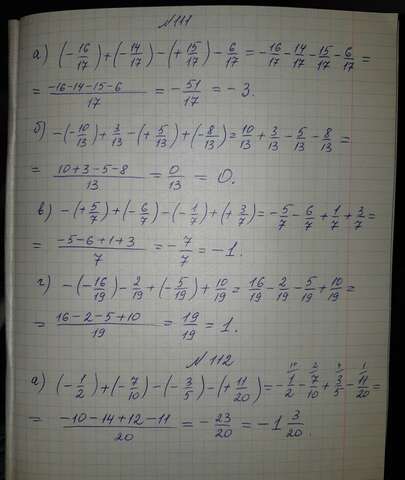 №111
а) (-16/17)+(-14/17)-(+15/17)-6/17=-16/17-14/17-15/17-6/17=
= -16-14-15-6/17 = -51/17 = -3.
б) -(-10/13)+3/13-(+5/13)+(-8/13)=10/13+3/13-5/13-8/13=
= 10+3-5-8/13 = 0/13 = 0.
в) -(+5/7)+(-6/7)-(-1/7)+(+3/7)=-5/7-6/7+1/7+3/7=
= -5-6+1+3/7 = -7/7 = -1.
г) -(-16/19)-2/19+(-5/19)+10/19=16/19-2/19-5/19+10/19=
= 16-2-5+10/19 = 19/19 = 1.
№112
а) (-1/2)+(-7/10)-(-3/5)-(+11/20)=-1/2-7/10+3/5-11/20=
= -10-14+12-11/20 = -23/20 = -1 3/20.